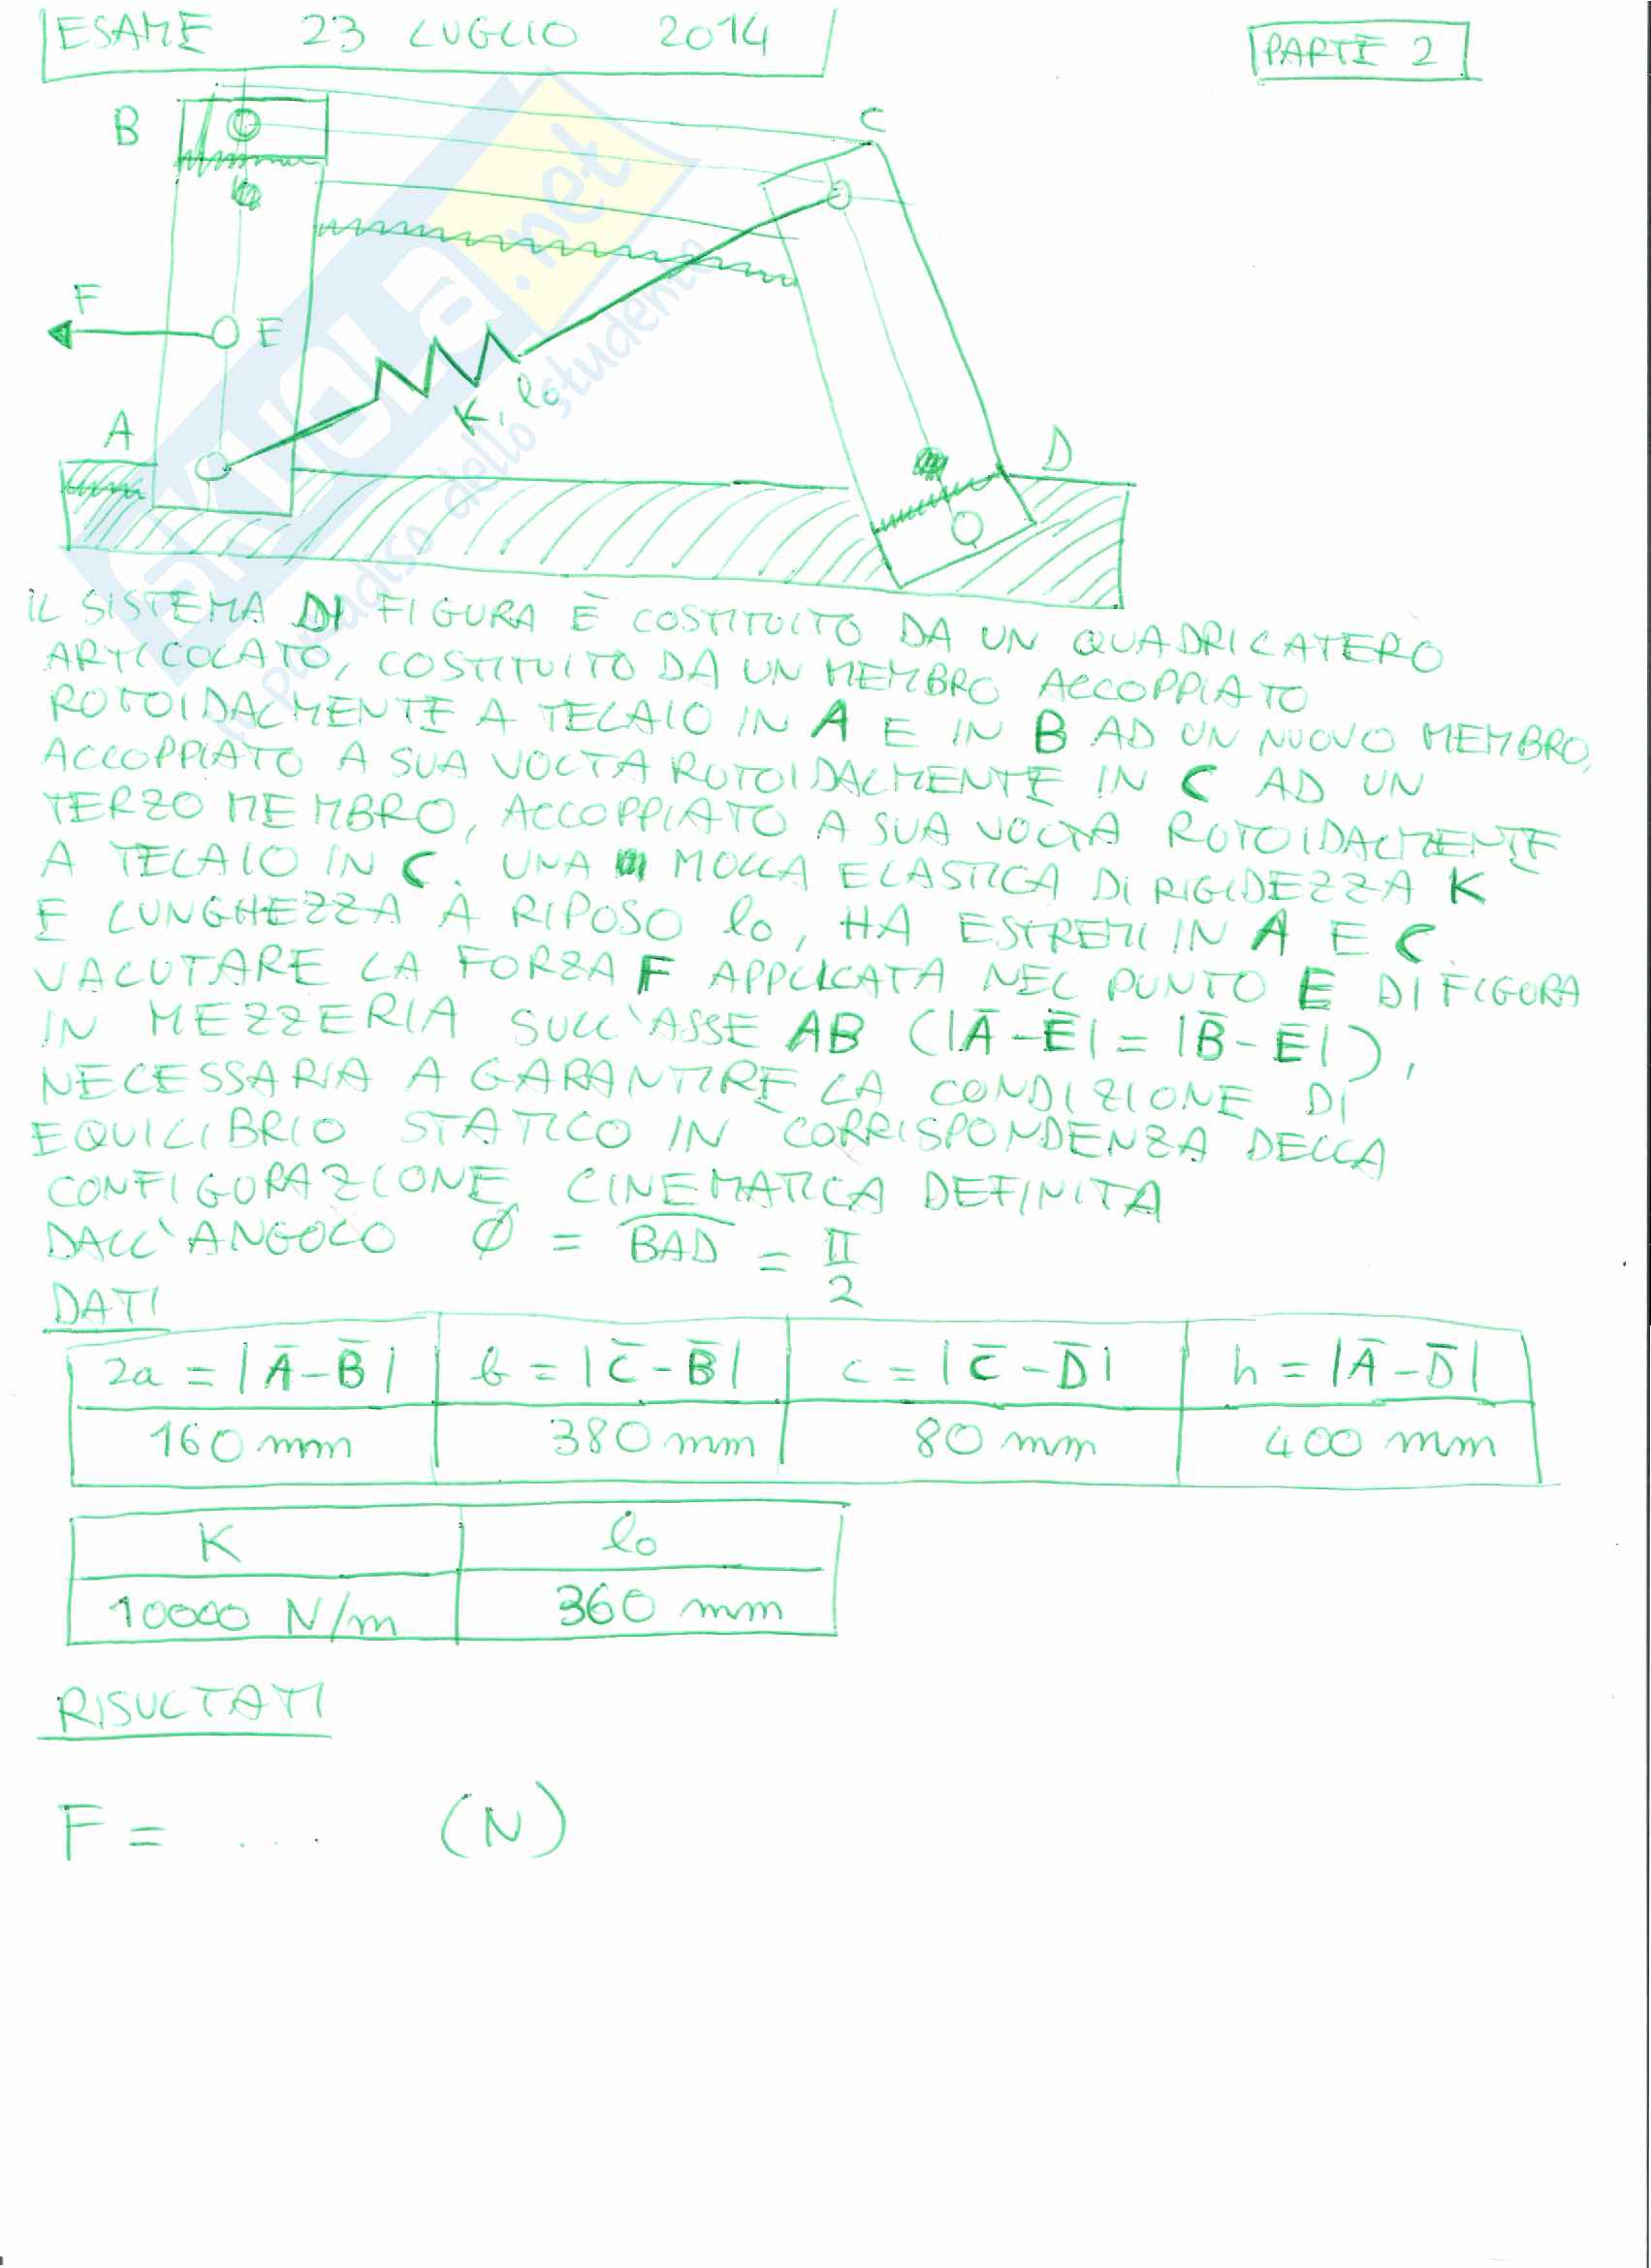 ESAME 23 LUGLIO 2014
PARTE 2
B
C
F
E
A
K, l0
D
SKUOLA.net
il paradiso dello studente
IL SISTEMA DI FIGURA È COSTITUITO DA UN QUADRILATERO
ARTICOLATO, COSTITUITO DA UN MEMBRO ACCOPPIATO
ROTOIDALMENTE A TELAIO IN A E IN B AD UN NUOVO MEMBRO,
ACCOPPIATO A SUA VOLTA ROTOIDALMENTE IN C AD UN
TERZO MEMBRO, ACCOPPIATO A SUA VOLTA ROTOIDALMENTE
A TELAIO IN C. UNA MOLLA ELASTICA DI RIGIDEZZA K
E LUNGHEZZA A RIPOSO l0, HA ESTREMI IN A E C.
VALUTARE LA FORZA F APPLICATA NEL PUNTO E DI FIGURA
IN MEZZERIA SULL'ASSE AB (|Ā-Ē| = |B̄-Ē|),
NECESSARIA A GARANTIRE LA CONDIZIONE DI
EQUILIBRIO STATICO IN CORRISPONDENZA DELLA
CONFIGURAZIONE CINEMATICA DEFINITA
DALL'ANGOLO Ø = BAD = π/2
DATI
2a = |Ā-B̄| b = |C̄-B̄| c = |C̄-D̄| h = |Ā-D̄|
160 mm 380 mm 80 mm 400 mm
K l0
10000 N/m 360 mm
RISULTATI
F = .... (N)